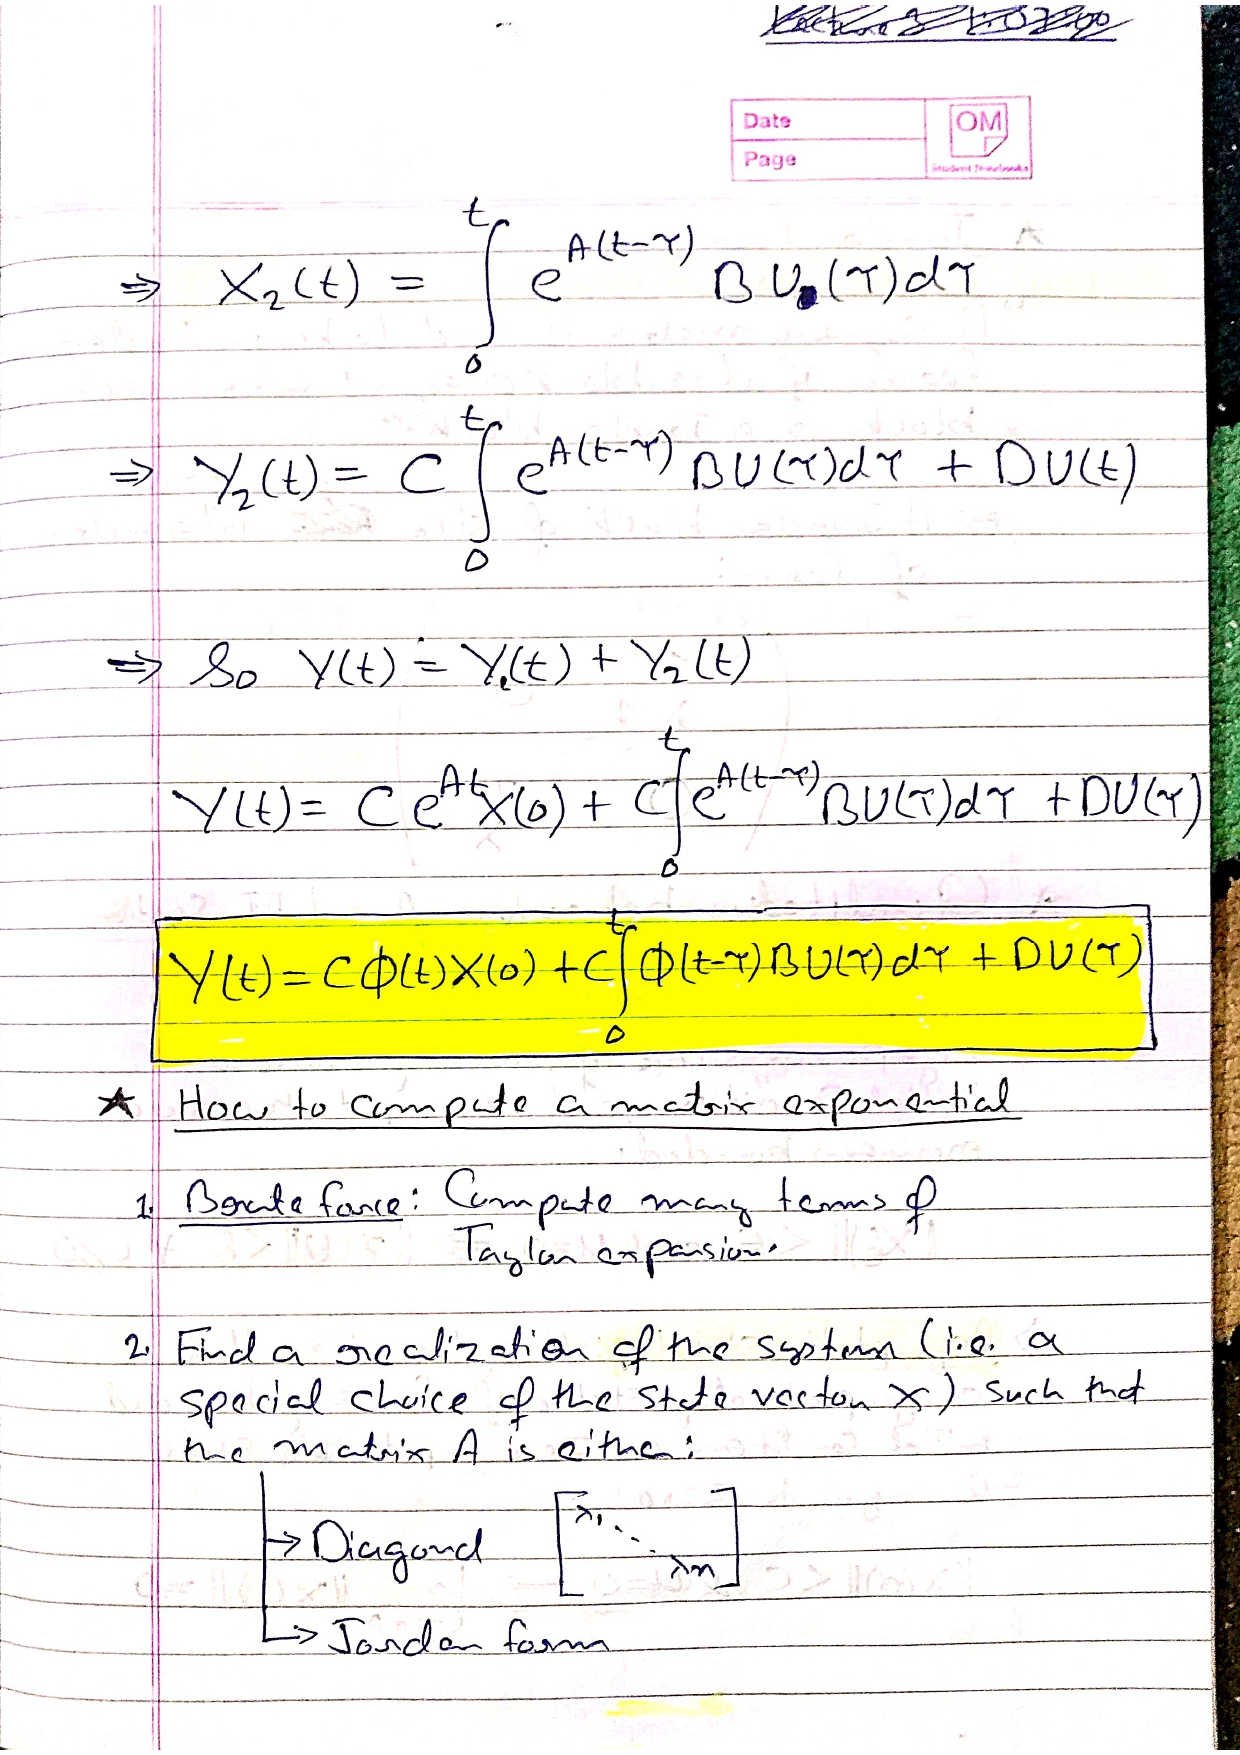 Date
OM
Page
Student Notebooks
⇒ X₂(t) = ∫₀ᵗ e^{A(t-τ)} B U(τ)dτ
⇒ Y₂(t) = C ∫₀ᵗ e^{A(t-τ)} BU(τ)dτ + DU(t)
⇒ So Y(t) = Y₁(t) + Y₂(t)
Y(t) = C e^{At} X(0) + C∫₀ᵗ e^{A(t-τ)} BU(τ)dτ + DU(τ)
Y(t) = C Φ(t) X(0) + C∫₀ᵗ Φ(t-τ) BU(τ) dτ + DU(τ)
★ How to compute a matrix exponential
1. Brute force: Compute many terms of
Taylor expansion.
2. Find a realization of the system (i.e. a
special choice of the state vector x) such that
the matrix A is either:
→ Diagonal [λ₁ ⋱ λn]
→ Jordan form